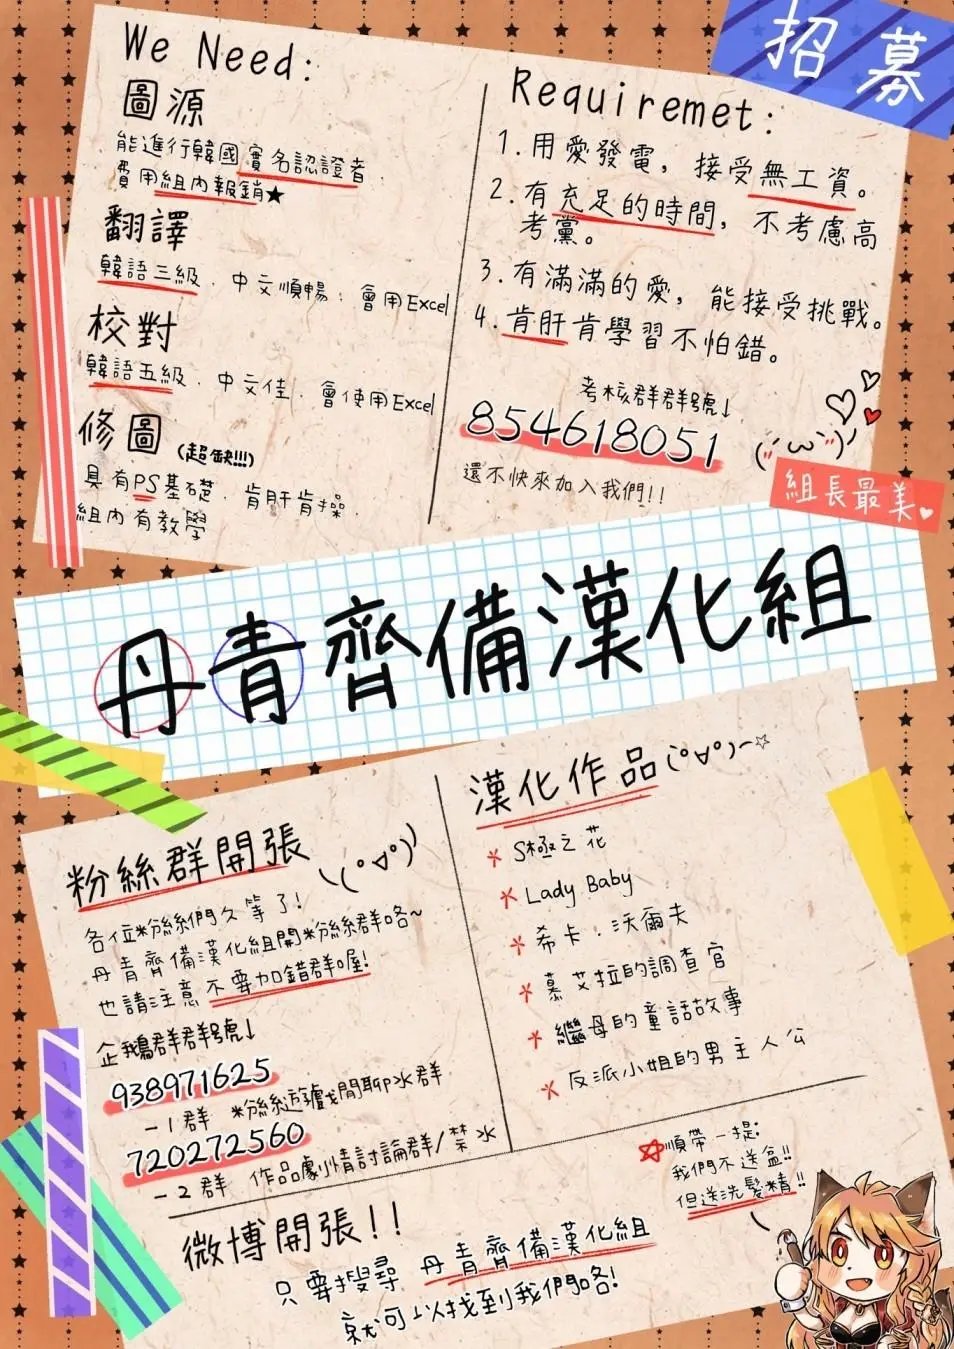 招募
We Need:
圖源
能進行韓國實名認證者
費用組內報銷★
翻譯
韓語三級．中文順暢．會用Excel
校對
韓語五級．中文佳．會使用Excel
修圖(超缺!!!)
具有PS基礎．肯肝肯操．
組內有教學
Requiremet:
1.用愛發電，接受無工資。
2.有充足的時間，不考慮高
考黨。
3.有滿滿的愛，能接受挑戰。
4.肯肝肯學習不怕錯。
考核群群號↓
854618051
還不快來加入我們!!
組長最美
丹青齊備漢化組
粉絲群開張
各位粉絲們久等了!
丹青齊備漢化組開粉絲群咯~
也請注意不要加錯群喔!
企鵝群群號↓
938971625
-1群 粉絲這號閒聊水群
720272560
-2群 作品劇情討論群/禁水
漢化作品(°∀°)~☆
S極之花
Lady Baby
希卡．沃爾夫
慕艾拉的調查官
繼母的童話故事
反派小姐的男主人公
順帶一提:
我們不送盒!!
但送洗髮精!!
微博開張!!
只要搜尋 丹青齊備漢化組
就可以找到我們咯!